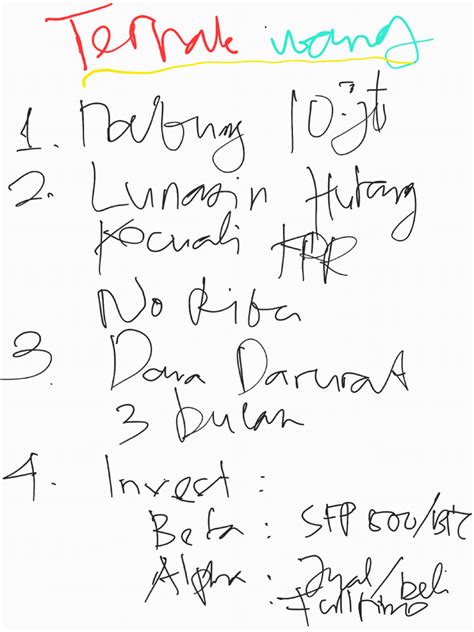 Ternak uang
1. Nabung 10 jt
2. Lunasin Hutang
Kecuali KPR
No Riba
3. Dana Darurat
3 bulan
4. Invest :
Beta : S&P 500/BTC
Alpha : Jual/beli